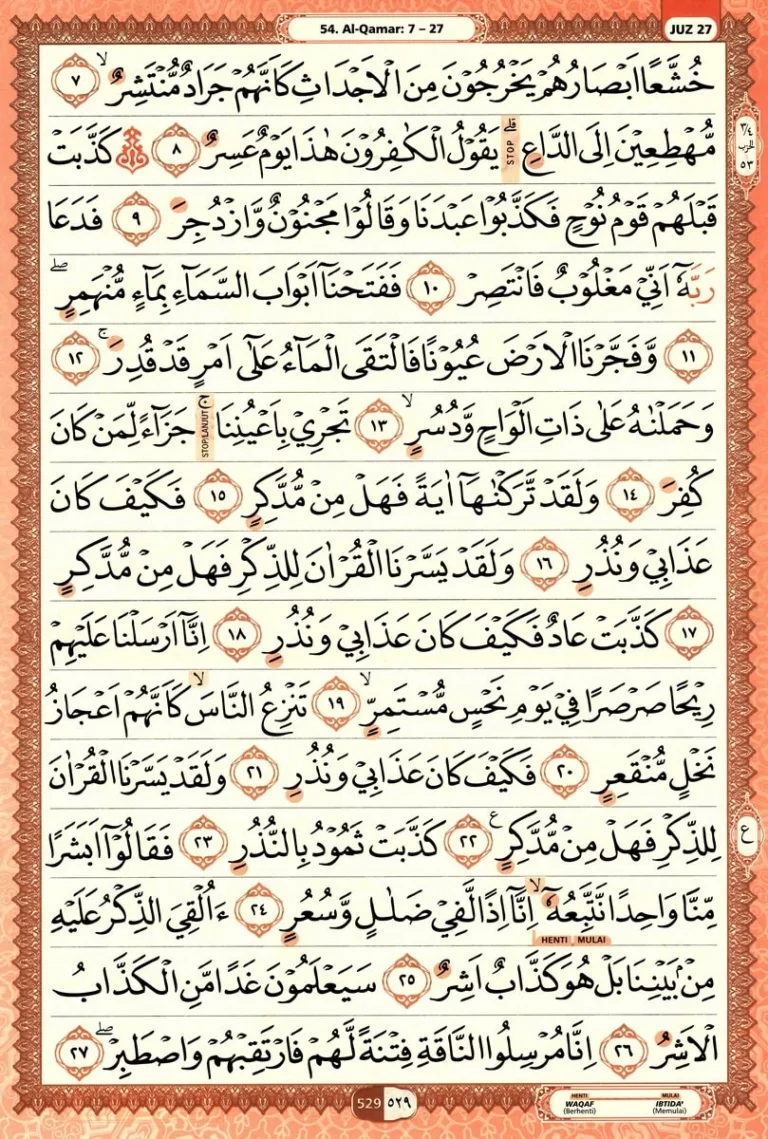 54. Al-Qamar: 7 – 27
JUZ 27
خُشَّعًا اَبْصَارُهُمْ يَخْرُجُوْنَ مِنَ الْاَجْدَاثِ كَاَنَّهُمْ جَرَادٌ مُّنْتَشِرٌۙ ٧
مُّهْطِعِيْنَ اِلَى الدَّاعِۗ STOP يَقُوْلُ الْكٰفِرُوْنَ هٰذَا يَوْمٌ عَسِرٌ ٨ ۞ كَذَّبَتْ
قَبْلَهُمْ قَوْمُ نُوْحٍ فَكَذَّبُوْا عَبْدَنَا وَقَالُوْا مَجْنُوْنٌ وَّازْدُجِرَ ٩ فَدَعَا
رَبَّهٗٓ اَنِّيْ مَغْلُوْبٌ فَانْتَصِرْ ١٠ فَفَتَحْنَآ اَبْوَابَ السَّمَاۤءِ بِمَاۤءٍ مُّنْهَمِرٍۖ
١١ وَّفَجَّرْنَا الْاَرْضَ عُيُوْنًا فَالْتَقَى الْمَاۤءُ عَلٰٓى اَمْرٍ قَدْ قُدِرَۚ ١٢
وَحَمَلْنٰهُ عَلٰى ذَاتِ اَلْوَاحٍ وَّدُسُرٍۙ ١٣ تَجْرِيْ بِاَعْيُنِنَاۚ STOP/LANJUT جَزَاۤءً لِّمَنْ كَانَ
كُفِرَ ١٤ وَلَقَدْ تَّرَكْنٰهَآ اٰيَةً فَهَلْ مِنْ مُّدَّكِرٍ ١٥ فَكَيْفَ كَانَ
عَذَابِيْ وَنُذُرِ ١٦ وَلَقَدْ يَسَّرْنَا الْقُرْاٰنَ لِلذِّكْرِ فَهَلْ مِنْ مُّدَّكِرٍ
١٧ كَذَّبَتْ عَادٌ فَكَيْفَ كَانَ عَذَابِيْ وَنُذُرِ ١٨ اِنَّآ اَرْسَلْنَا عَلَيْهِمْ
رِيْحًا صَرْصَرًا فِيْ يَوْمِ نَحْسٍ مُّسْتَمِرٍّۙ ١٩ تَنْزِعُ النَّاسَۙ كَاَنَّهُمْ اَعْجَازُ
نَخْلٍ مُّنْقَعِرٍ ٢٠ فَكَيْفَ كَانَ عَذَابِيْ وَنُذُرِ ٢١ وَلَقَدْ يَسَّرْنَا الْقُرْاٰنَ
لِلذِّكْرِ فَهَلْ مِنْ مُّدَّكِرٍ ࣖ ٢٢ كَذَّبَتْ ثَمُوْدُ بِالنُّذُرِ ٢٣ فَقَالُوْٓا اَبَشَرًا
مِّنَّا وَاحِدًا نَّتَّبِعُهٗٓۙ اِنَّآ اِذًا لَّفِيْ ضَلٰلٍ وَّسُعُرٍ ٢٤ ءَاُلْقِيَ الذِّكْرُ عَلَيْهِ
HENTI MULAI
مِنْۢ بَيْنِنَا بَلْ هُوَ كَذَّابٌ اَشِرٌ ٢٥ سَيَعْلَمُوْنَ غَدًا مَّنِ الْكَذَّابُ
الْاَشِرُ ٢٦ اِنَّا مُرْسِلُوا النَّاقَةِ فِتْنَةً لَّهُمْ فَارْتَقِبْهُمْ وَاصْطَبِرْۖ ٢٧
٣/٤
الحزب
٥٣
ع
529 ٥٢٩
HENTI MULAI
WAQAF IBTIDA'
(Berhenti) (Memulai)